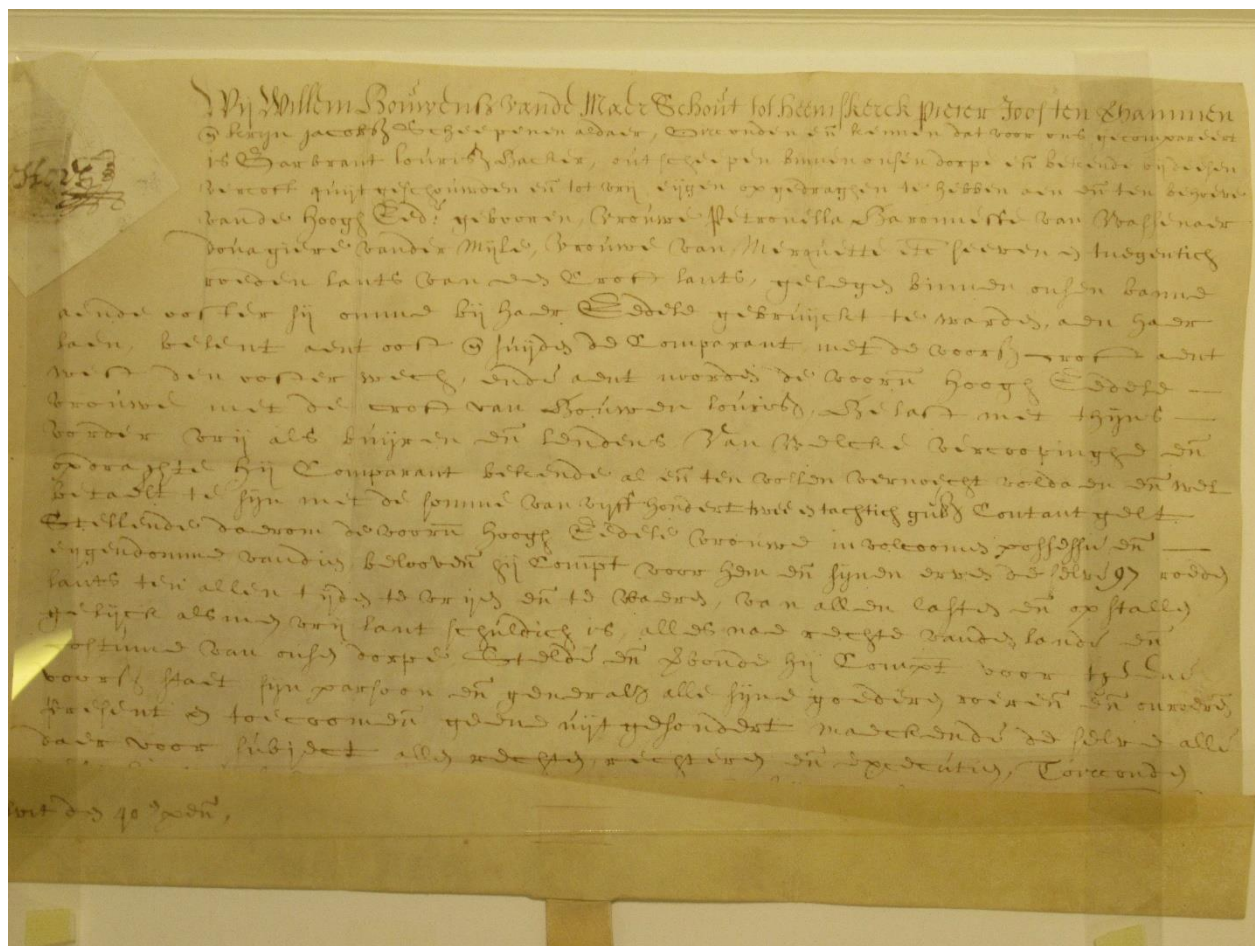 Wij Willem Bouwensz vande Maer Schout tot heemskerck Pieter Joosten Ehammen
Crijn Jacobsz Scheepenen aldaer, Oirconden eñ kennen dat voor ons gecompareert
is Garbrant lourisz Backer, out scheepen binnen onsen dorpe eñ bekende bij deesen
vercoft quijt geschouwden eñ tot vrij eijgen opgedraghen te hebben aen eñ ten behoeve
vande Hoogh Eed: gebooren, Vrouwe Petronella Baronnesse van Wassenaer
douagiere vander Mijle, Vrouwe van Merquette etc seeven en tnegentich
roeden lants van een Croft lants, gelegen binnen onsen banne
aende ooster sij omme bij Haer Eedele gebruijckt te warden, aen haer
laen, belent aent oost suijden de Comparant met de voorsz croft aent
west den ooster wech, ende aent noorden de voorñ Hoogh Eedele
vrouwe met de croft van Bouwen lourisz, Belast met thijns
vorder vrij als buijren eñ lendens Van Welcke vercoopinghe eñ
opdrachte Hij Comparant bekende al eñ ten vollen vernoecht voldaen eñ wel
betaelt te sijn met de somme van vijff hondert twee en tachtich gulds Contant gelt
Stellende daerom de voorñ Hoogh Eedele vrouwe in volcoomen possessie eñ
eijgendomme vandien, belooveñ hij Compt voor hem eñ sijnen erven de selve 97 roeden
lants ten allen tijden te vrijen eñ te waeren, van allen lasten eñ opstallen
gelijck als men vrij lant schuldich is, alles nae rechte vanden lande eñ
costume van onsen dorpe Stelde eñ Verbonde hij Compt voor tgene
voorsz staet sijn parsoon eñ generalijck alle sijne goederen roereñ eñ onroereñ
Present en toecoomeñ geene uijtgesondert maeckende de selve alle
daer voor subject allen rechten rechteren eñ executien, Toirconden
den 40 en peñ,